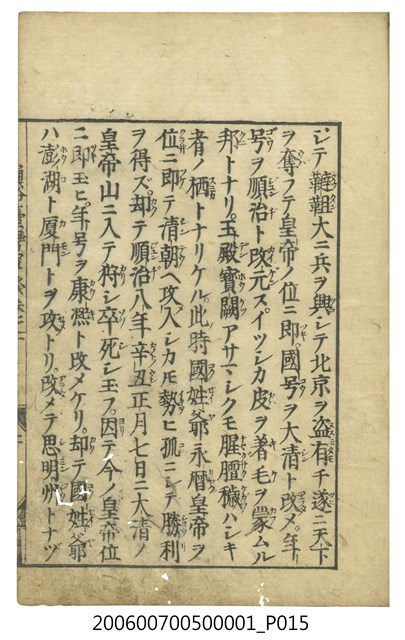 シテ韃靼大ニ兵ヲ興シテ北京ヲ盗有チ遂ニ天下
ヲ奪フテ皇帝ノ位ニ即。國号ヲ大清ト改メ。年
号ヲ順治ト改元スイツシカ皮ヲ著毛ヲ蒙ムル
邦トナリ。玉殿寳闕アサマシクモ腥膻穢ハシキ
者ノ栖トナリケル此時國姓爺永暦皇帝ヲ
位ニ即テ清朝ヘ攻入シカ𪜈勢ヒ孤ニシテ勝利
ヲ得ズ。却テ順治八年辛丑正月七日ニ大清ノ
皇帝山ニ入テ狩シ卒死シ玉フ。因テ今ノ皇帝位
ニ即玉ヒ。年号ヲ康熈ト改メケリ。却テ國姓爺
ハ澎湖ト厦門トヲ攻トリ。改メテ思明州トナヅ
200600700500001_P015